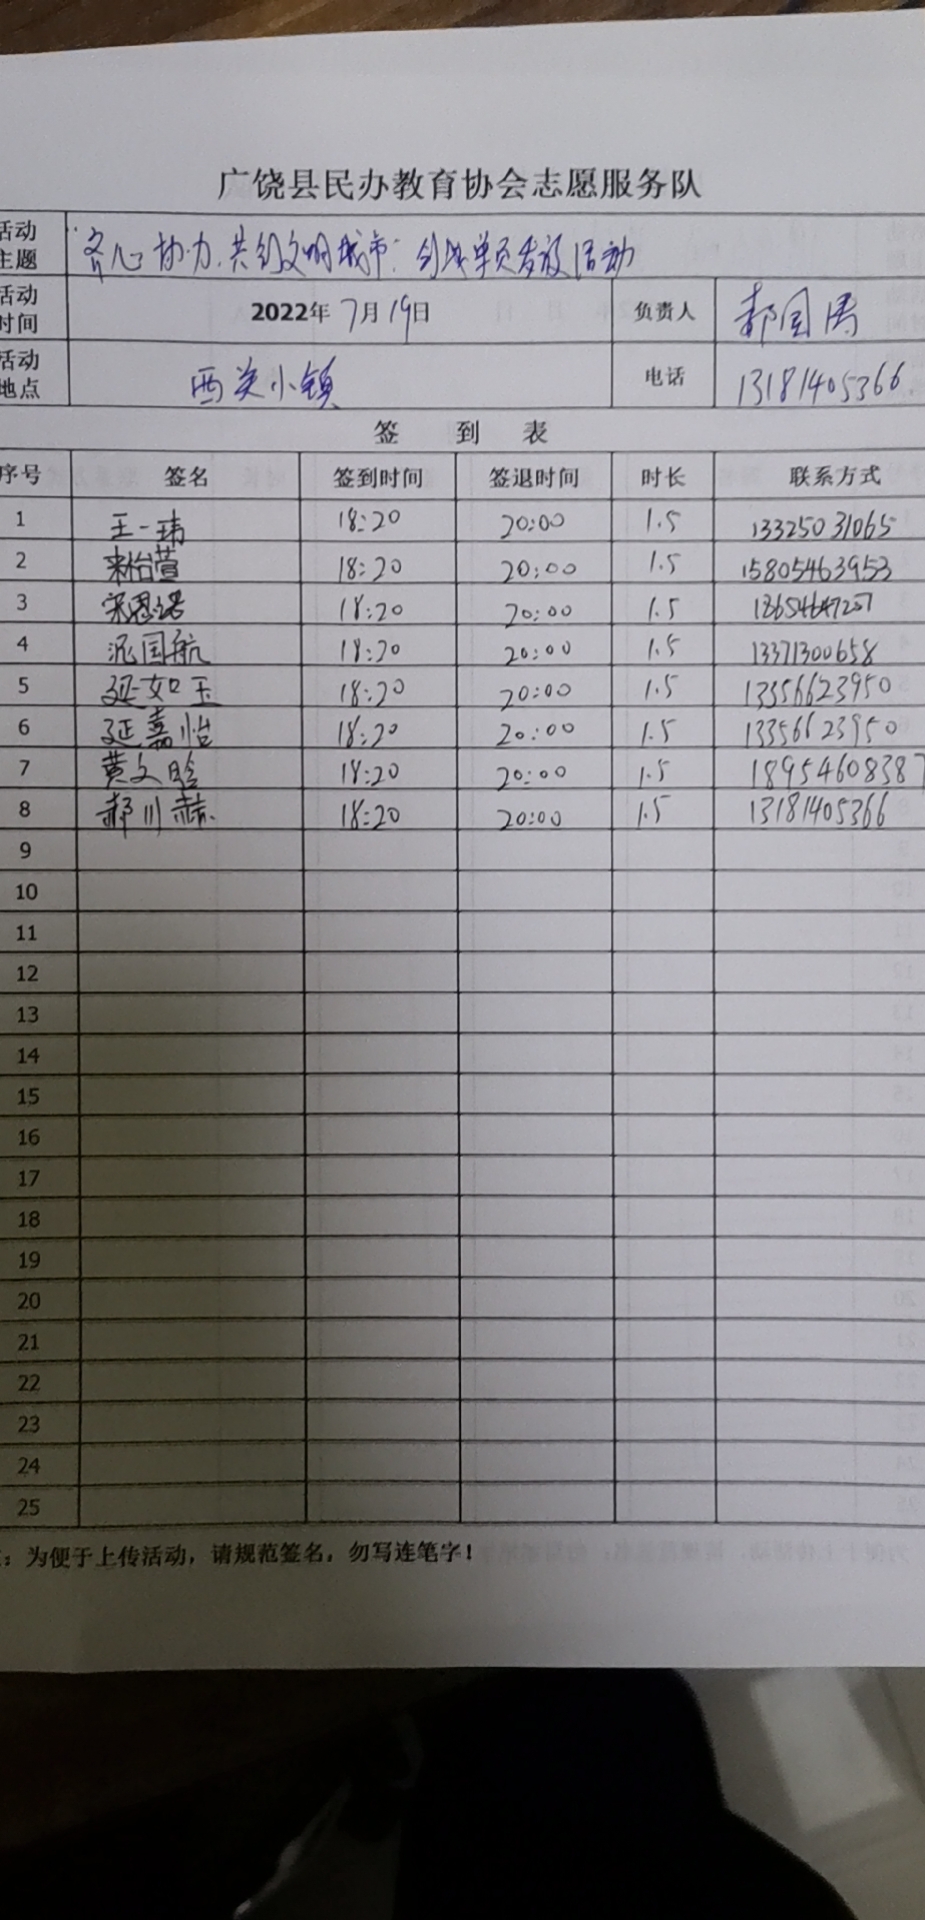 广饶县民办教育协会志愿服务队
活动主题 齐心协力,共创文明城市:创城单页发放活动
活动时间 2022年7月19日 负责人 郝国涛
活动地点 西关小镇 电话 13181405366
签 到 表
序号 签名 签到时间 签退时间 时长 联系方式
1 王一玮 18:20 20:00 1.5 13325031065
2 来怡萱 18:20 20:00 1.5 15805463953
3 宋恩诺 18:20 20:00 1.5
4 国航 18:20 20:00 1.5 13371300658
5 延如玉 18:20 20:00 1.5 13356623950
6 延嘉怡 18:20 20:00 1.5 13356623950
7 黄文晗 18:20 20:00 1.5 18954608387
8 郝川赫 18:20 20:00 1.5 13181405366
9
10
11
12
13
14
15
16
17
18
19
20
21
22
23
24
25
:为便于上传活动,请规范签名,勿写连笔字!